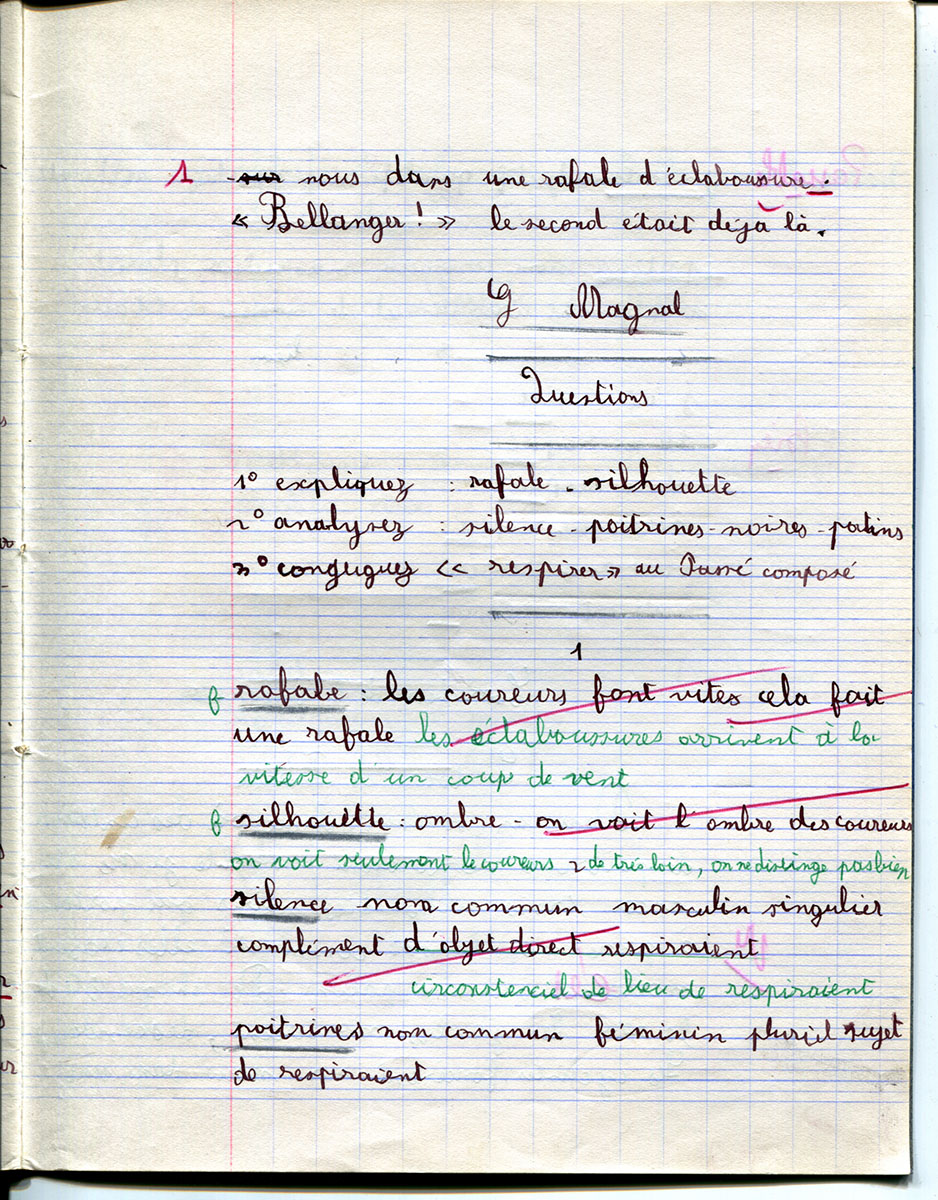 1 sur nous dans une rafale d'éclaboussure.
« Bellanger ! » le second était déjà là.
G Magnal
Questions
1° expliquez : rafale - silhouette
2° analysez : silence - poitrines - noires - patins
3° conguguez « respirer » au Passé composé
1
rafale : les coureurs font vites cela fait
une rafale les éclaboussures arrivent à la
vitesse d'un coup de vent
silhouette : ombre - on voit l'ombre des coureurs
on voit seulement le coureurs de très loin, on ne distinge pas bien
silence nom commun masculin singulier
complément d'objet direct respiraient
circonstenciel de lieu de respiraient
poitrines nom commun féminin pluriel sujet
de respiraient